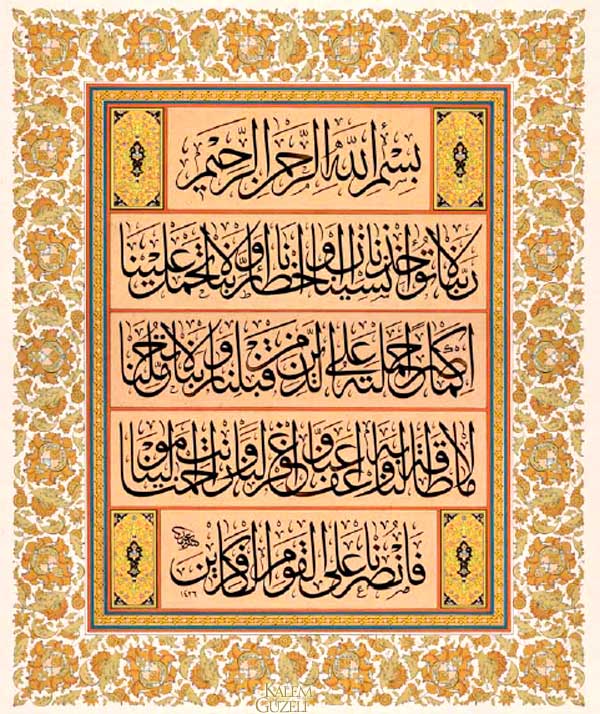 بسم الله الرحمن الرحيم
ربنا لا تؤاخذنا إن نسينا أو أخطأنا ربنا ولا تحمل علينا
إصرا كما حملته على الذين من قبلنا ربنا ولا تحملنا
ما لا طاقة لنا به واعف عنا واغفر لنا وارحمنا أنت مولانا
فانصرنا على القوم الكافرين
١٤٢٦
KALEM
GÜZELİ